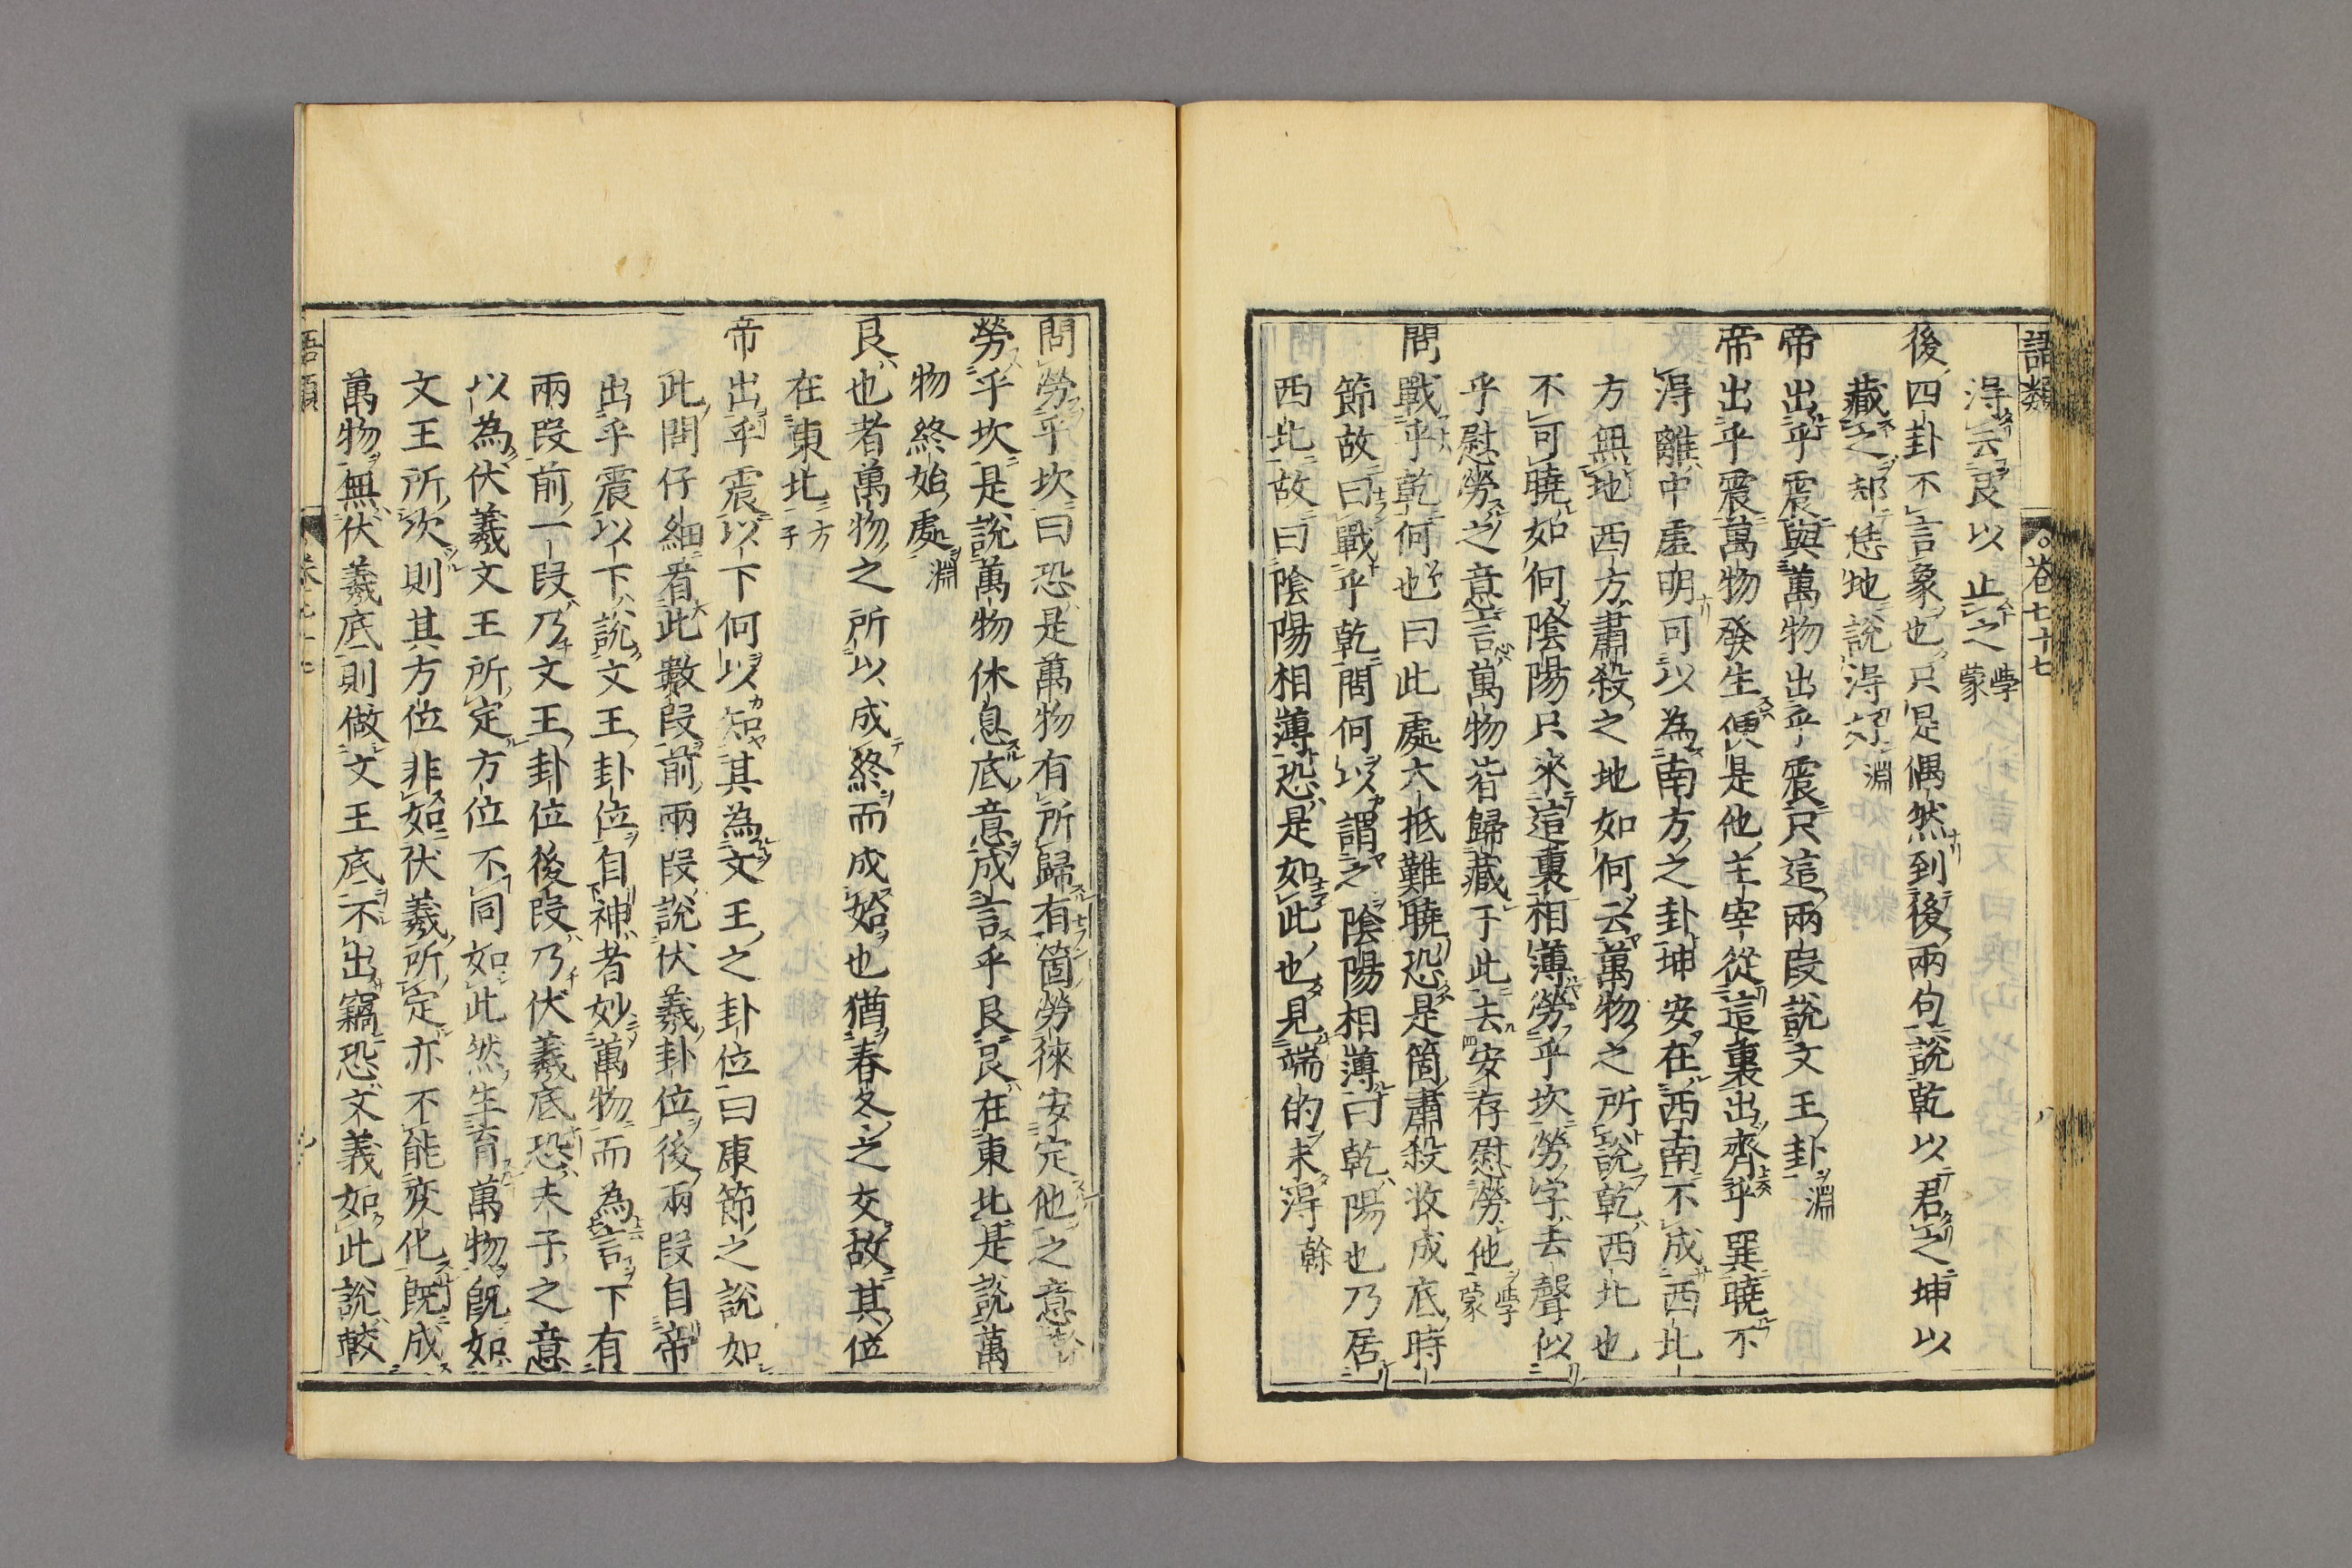 語類
卷七十七
八
淂云艮以止之學蒙
後四卦不言象也只是偶然到後兩句說乾以君之坤以
藏之却恁地說淂好淵
帝出乎震與萬物出乎震只這兩段說文王卦淵
帝出乎震萬物發生便是他主宰從這裏出齊乎巽曉不
淂離中虛明可以為南方之卦坤安在西南不成西北
方無地西方肅殺之地如何云萬物之所說乾西北也
不可曉如何陰陽只來這裏相薄勞乎坎勞字去聲似
乎慰勞之意言萬物皆歸藏于此去安存慰澇他學蒙
問戰乎乾何也曰此處大抵難曉恐是箇肅殺收成底時
節故曰戰乎乾問何以謂之陰陽相薄曰乾陽也乃居
西北故曰陰陽相薄恐是如此也見端的未淂榦
問勞乎坎曰恐是萬物有所歸有箇勞徠安定他之意
勞乎坎是說萬物休息底意成言乎艮艮在東北是說萬
物終始處淵
艮也者萬物之所以成終而成始也猶春冬之交故其位
在東北方子
帝出乎震以下何以知其為文王之卦位曰康節之說如
此問仔細看此數段前兩段說伏羲卦位後兩段自帝
出乎震以下說文王卦位自神者妙萬物而為言下有
兩段前一段乃文王卦位後段乃伏羲底恐夫子之意
以為伏羲文王所定方位不同如此然生育萬物既如
文王所次則其方位非如伏羲所定亦不能変化既成
萬物無伏羲底則做文王底不出竊恐文義如此說較
語類